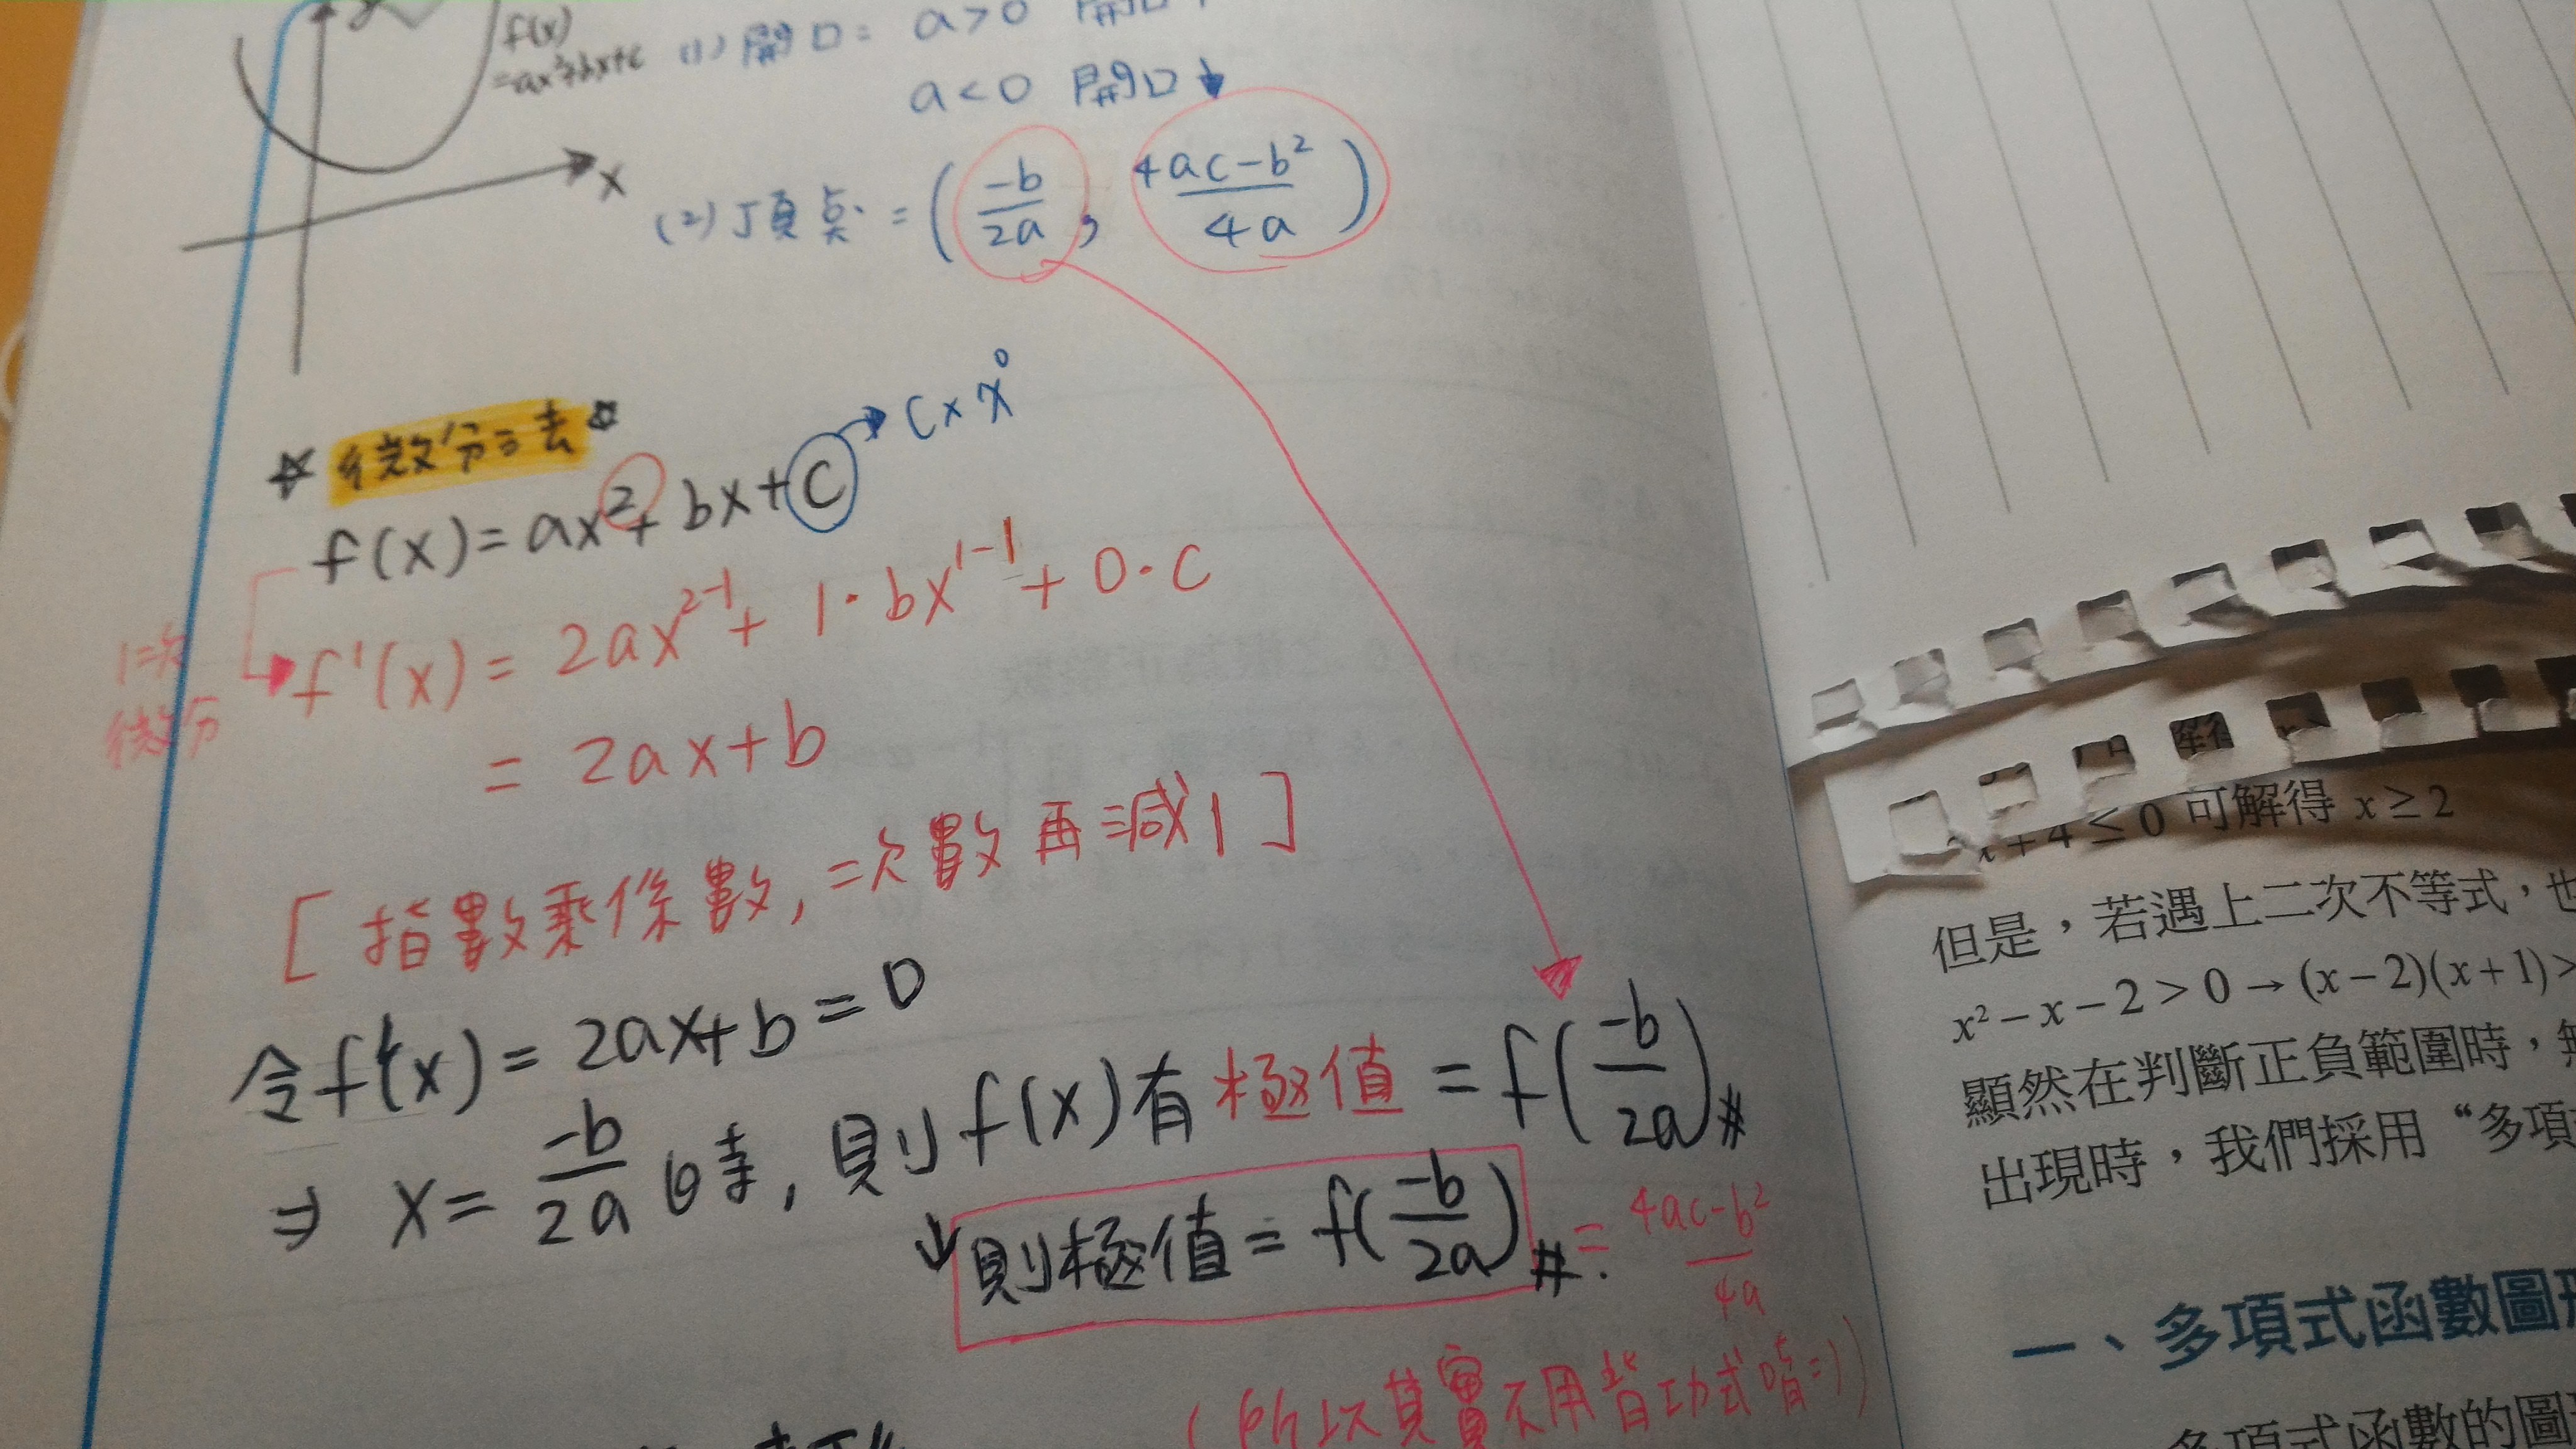 f(x)
=ax²+bx+c
x
(1) 開口: a>0 開口
a<0 開口↓
(2) 頂點 = (-b/2a, 4ac-b²/4a)
☆ 微分法 ☆
f(x)=ax²+bx+c → c×x⁰
1次
微分
f'(x) = 2ax²⁻¹ + 1·bx¹⁻¹ + 0·c
= 2ax+b
[指數乘係數, 次數再減1]
令f'(x) = 2ax+b = 0
⇒ x = -b/2a 時, 則f(x)有極值 = f(-b/2a)#
↓則極值 = f(-b/2a)#. = 4ac-b²/4a
(所以其實不用背功式唷=))
x+4 ≤ 0 可解得 x ≥ 2
但是，若遇上二次不等式，也
x²-x-2>0→(x-2)(x+1)>
顯然在判斷正負範圍時，無
出現時，我們採用“多項
一、多項式函數圖形
多項式函數的圖形